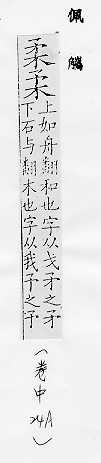 佩觿
柔柔
上如舟翻和也字从戈矛之矛
下石与翻木也字从我予之予
(卷中 24A)